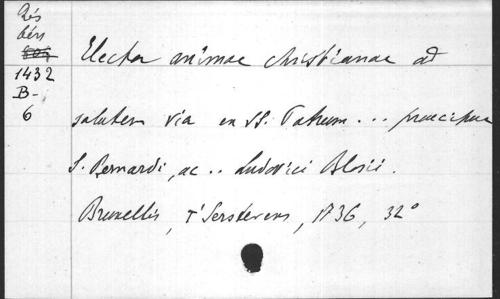 Rés
bérs
1432
B-
6
Electa animae christianae ad
salutem via ex SS. Patrum ... praecipue
S. Bernardi, ac .. Ludovici Blosii.
Bruxellis, t'Serstevens, 1736, 32°